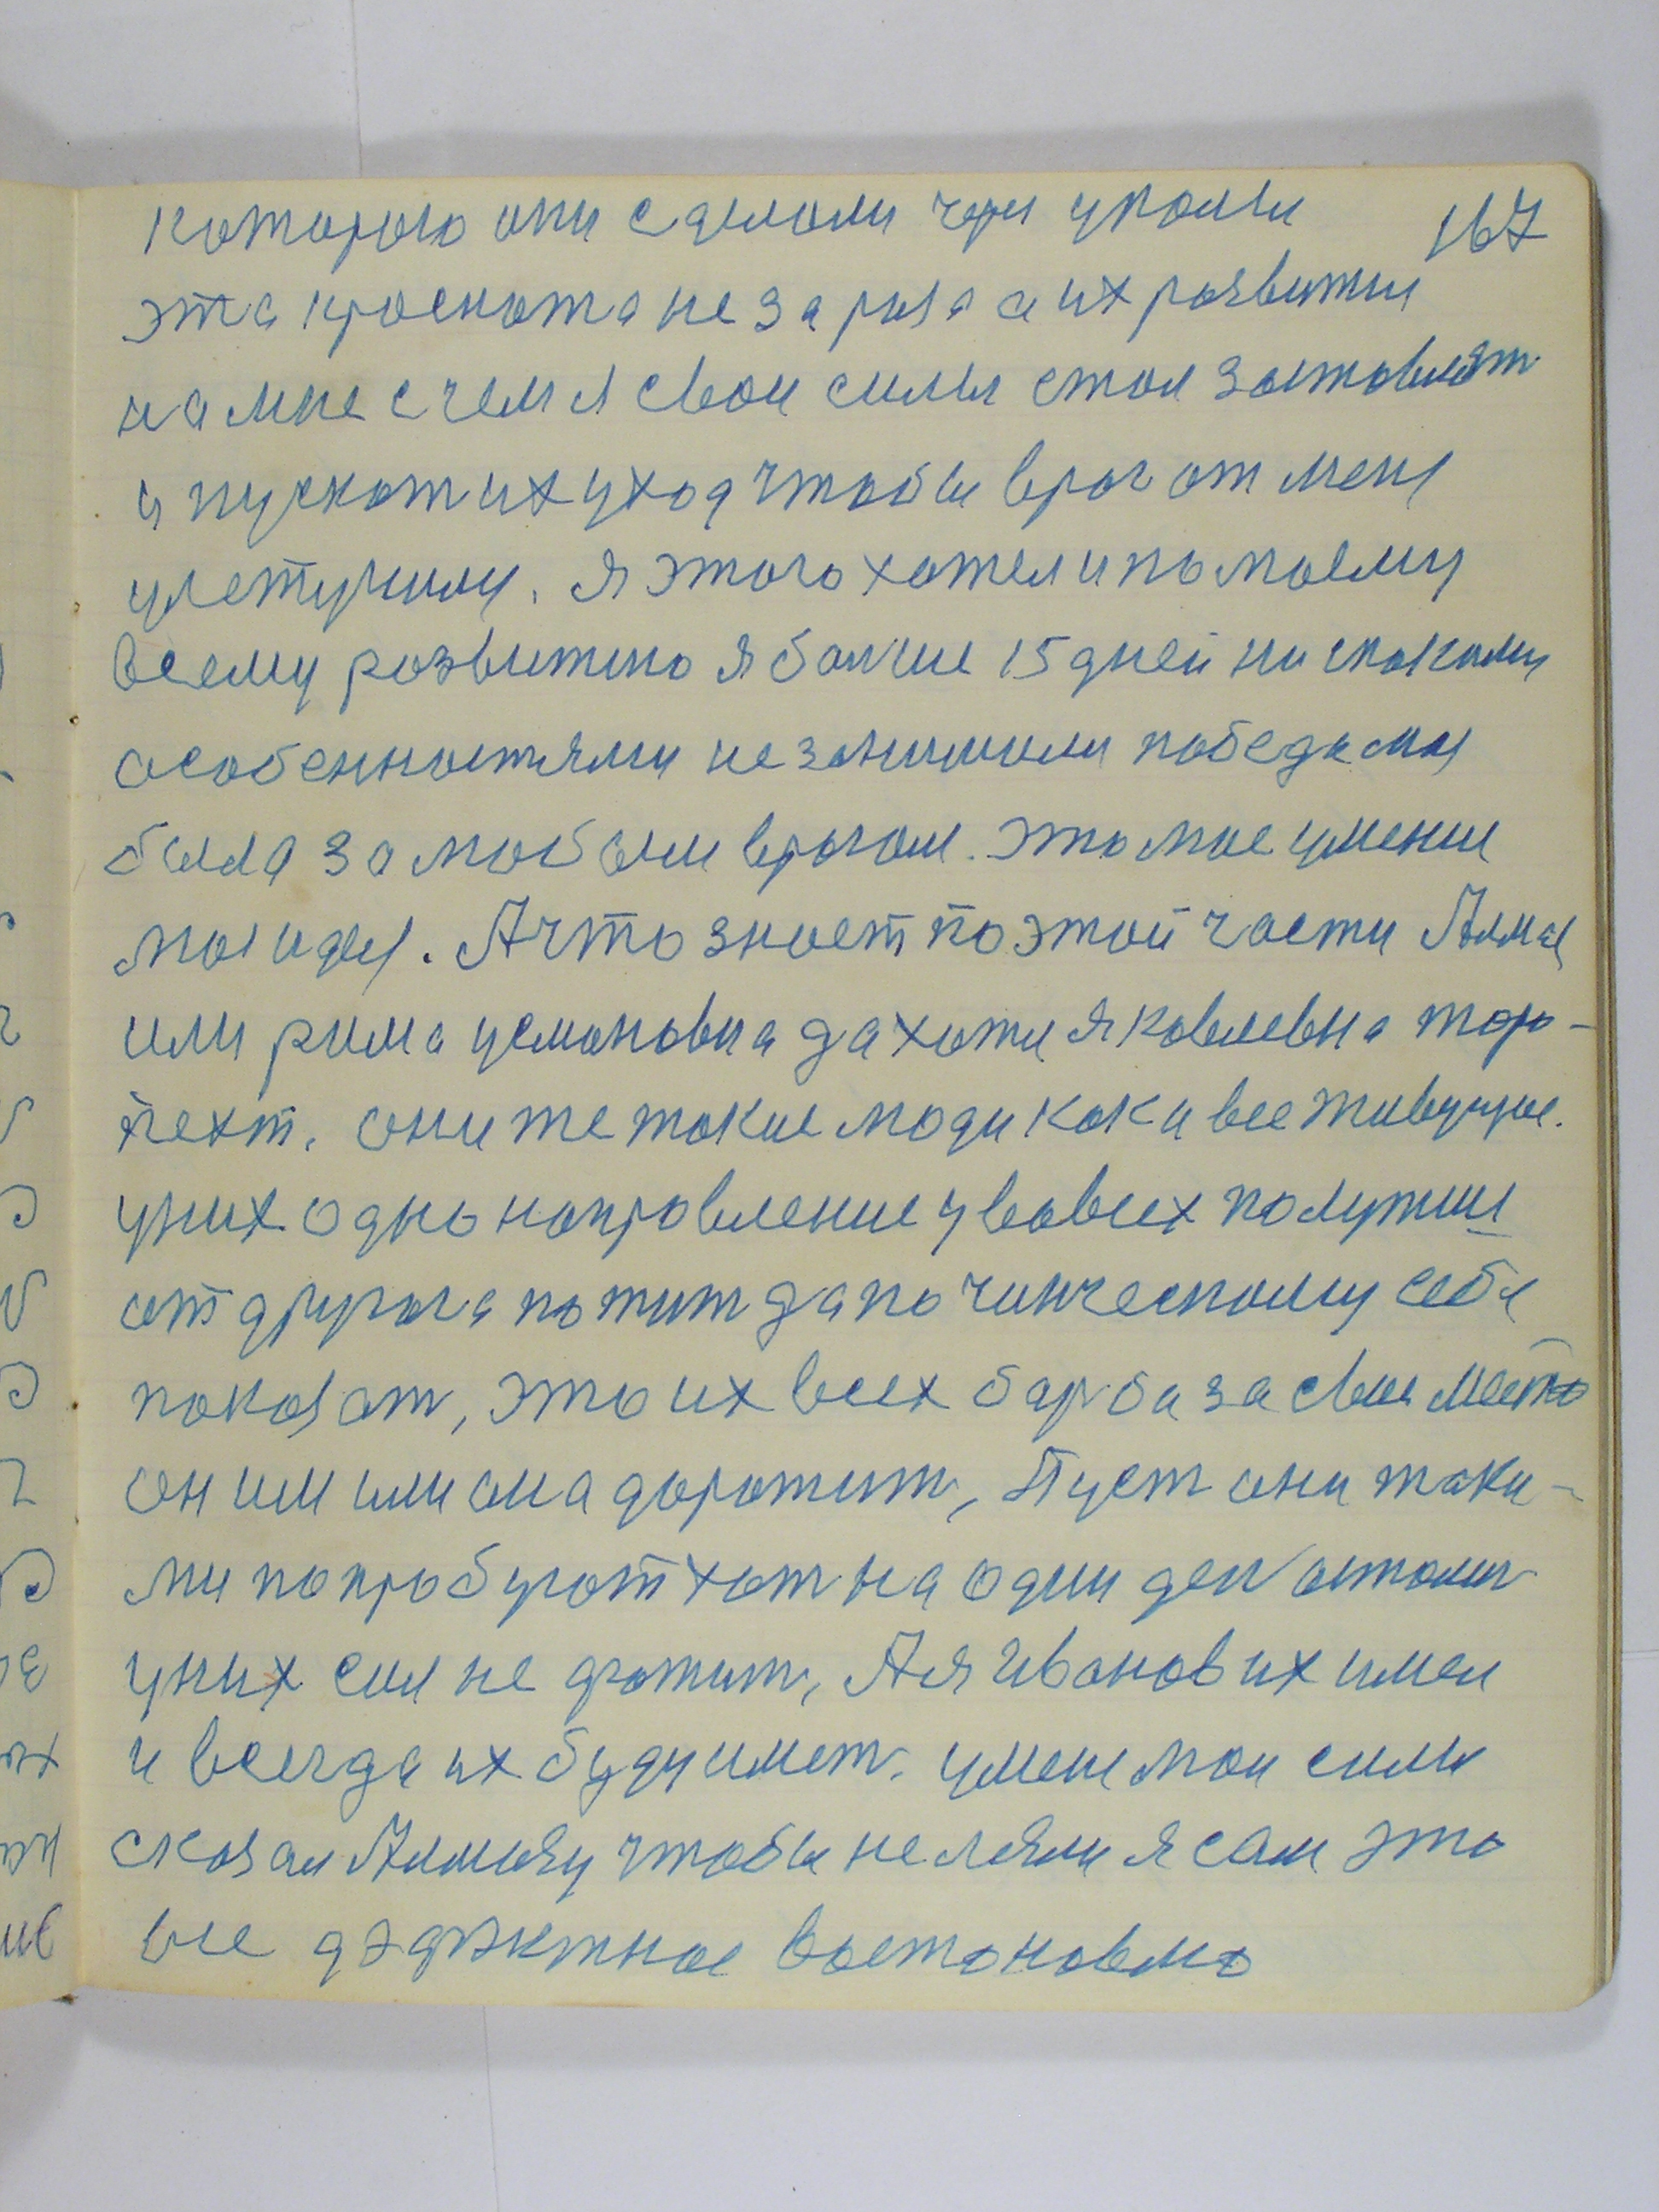 которого они сделали чри уколы 167
эта краснота не зараза а их развитии
на мне с чем я свои силы стал заставлят
и пускат их уход чтобы враг от мене
улетучилы. я этого хотел и по моему
всему развитию я болше 15 дней ни скакими
особенностями не занимали победа моя
была за любыми врагом. это мое умение
моя идея. А что знает по этой части Алма
или рима усмановна да хотя яковлевна тера-
певт. они же такие люди как и все живущие.
у них одно направление у вовсех полутши
от другога пожит да по чинческому себя
показат, это их всех барба за свое место
он им или она дорожит, Пуст они таки-
ми попробуют хот на один ден остолы
у них сил не хватит, А я Иванов их имел
и всегда их буду имет. умене мои силы
сказал Алмазу чтобы не лезли я сам это
все востановлю